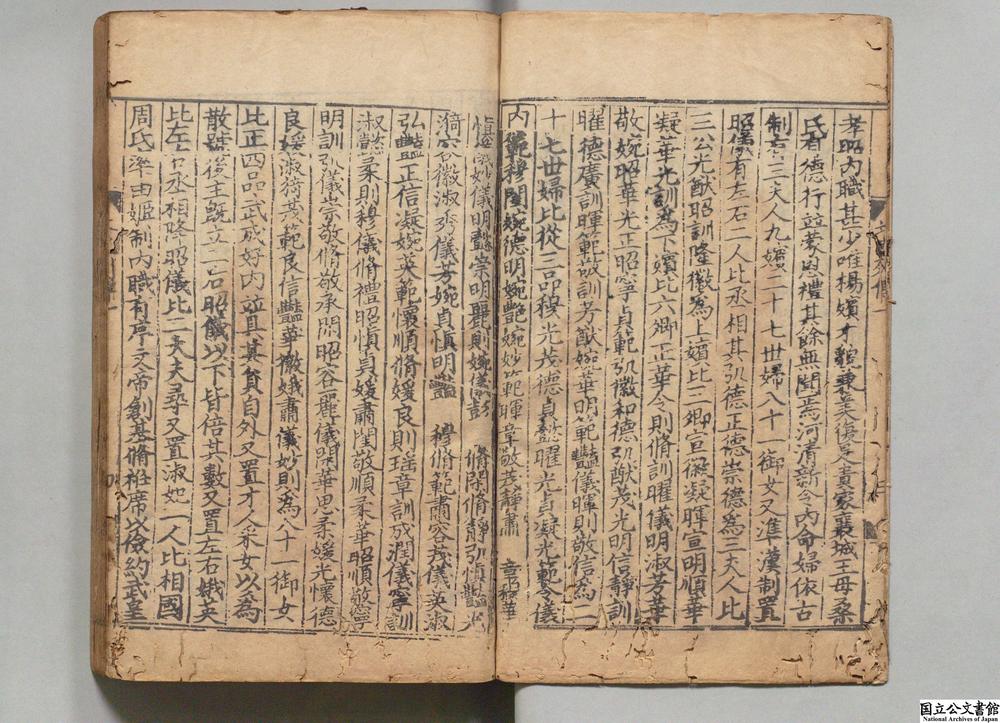 孝昭内職甚少唯楊嬪才貌兼美復是貴家襄城王母桑
氏有德行並蒙恩禮其餘無聞焉河清新令内命婦依古
制有三夫人九嬪二十七世婦八十一御女又進漢制置
昭儀有左右二人比丞相其弘德正德崇德為三夫人比
三公光猷昭訓隆徽為上嬪比三卿宣徽凝暉宣明順華
凝華光訓為下嬪比六卿正華令則脩訓曜儀明淑芳華
敬婉昭華光正昭寧貞範弘徽和德弘猷茂光明信静訓
曜德廣訓暉範敬訓芳猷婉華明範豔儀暉則敬信為二
十七世婦比從三品穆光茂德貞懿曜光貞凝光範令儀
内範穆閨婉德明婉艷婉妙範暉章敬茂靜肅章穆華
慎儀妙儀明懿崇明麗則婉儀彭脩閑脩靜弘慎豔光
漪容徽淑秀儀芳婉貞慎明豔穆脩範肅容茂儀英淑
弘豔正信凝婉英範懷順脩媛良則瑤章訓成潤儀寧訓
淑懿柔則穆儀脩禮昭慎貞媛肅閨敬順柔華昭順敬寧
明訓弘儀崇敬脩敬承閑昭容麗儀閑華思柔媛光懷德
良媛淑猗茂範良信豔華徽娥肅儀妙則為八十一御女
比正四品武成好内並具其員自外又置才人采女以為
散號後主既立二后昭儀以下皆倍其數又置左右娥英
比左右丞相降昭儀比二大夫尋又置淑妃一人比相國
周氏率由姬制内職有序文帝創基脩衽席以儉約武皇
国立公文書館
National Archives of Japan